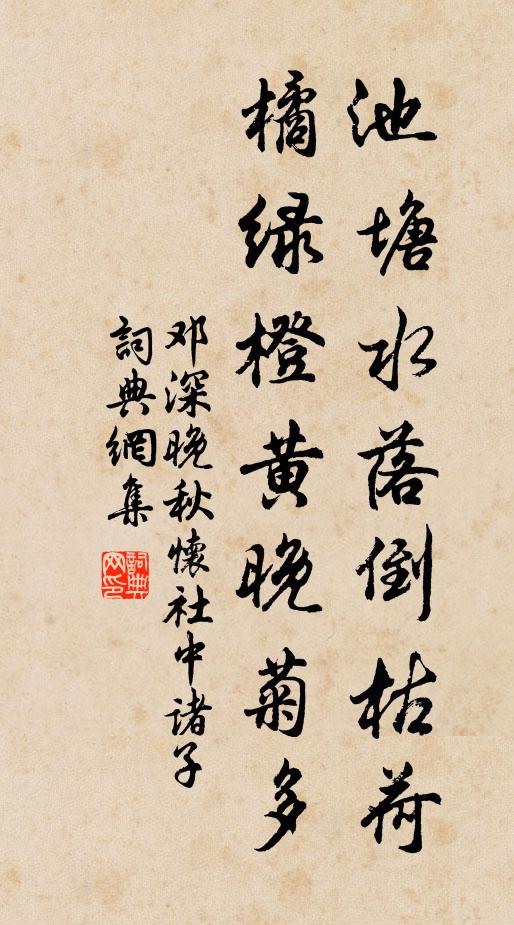 池塘水落倒枯荷
橘绿橙黄晚菊多
邓深晚秋怀社中诸子
詞典網集
詞典网印